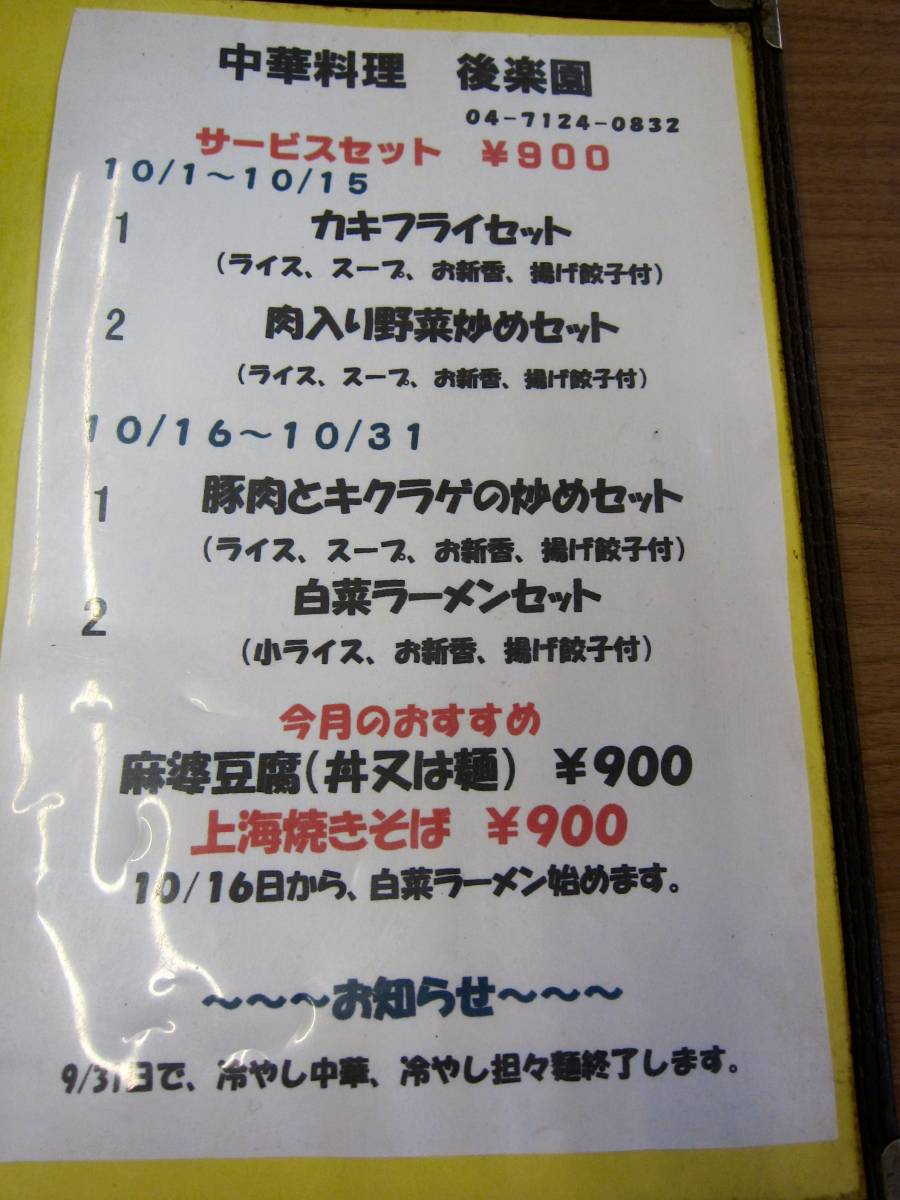 中華料理　後楽園
04-7124-0832
サービスセット　￥900
10/1～10/15
1　カキフライセット
（ライス、スープ、お新香、揚げ餃子付）
2　肉入り野菜炒めセット
（ライス、スープ、お新香、揚げ餃子付）
10/16～10/31
1　豚肉とキクラゲの炒めセット
（ライス、スープ、お新香、揚げ餃子付）
2　白菜ラーメンセット
（小ライス、お新香、揚げ餃子付）
今月のおすすめ
麻婆豆腐（丼又は麺）　￥900
上海焼きそば　￥900
10/16日から、白菜ラーメン始めます。
～～～お知らせ～～～
9/31日で、冷やし中華、冷やし担々麺終了します。